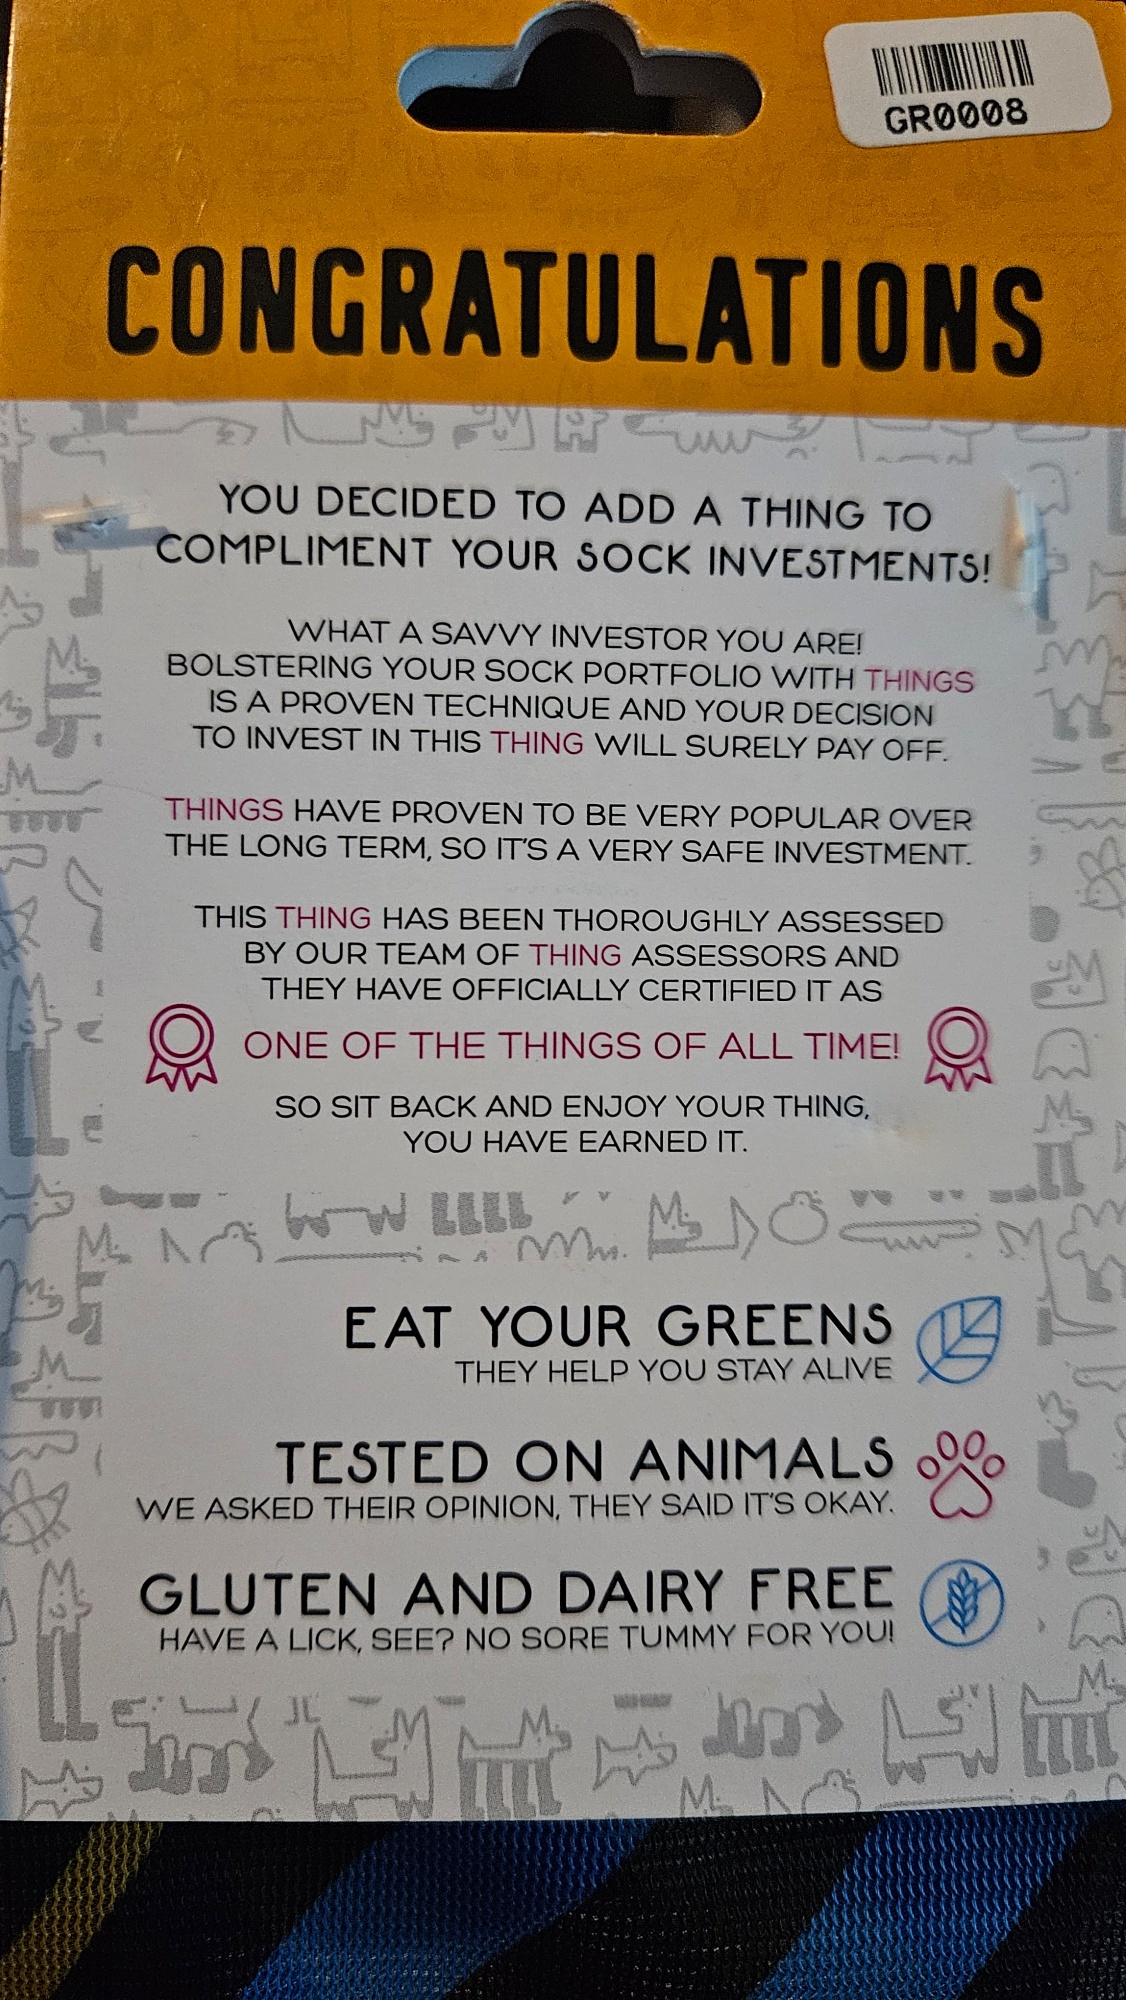 GR0008
CONGRATULATIONS
YOU DECIDED TO ADD A THING TO
COMPLIMENT YOUR SOCK INVESTMENTS!
WHAT A SAVVY INVESTOR YOU ARE!
BOLSTERING YOUR SOCK PORTFOLIO WITH THINGS
IS A PROVEN TECHNIQUE AND YOUR DECISION
TO INVEST IN THIS THING WILL SURELY PAY OFF.
THINGS HAVE PROVEN TO BE VERY POPULAR OVER
THE LONG TERM, SO IT'S A VERY SAFE INVESTMENT.
THIS THING HAS BEEN THOROUGHLY ASSESSED
BY OUR TEAM OF THING ASSESSORS AND
THEY HAVE OFFICIALLY CERTIFIED IT AS
ONE OF THE THINGS OF ALL TIME!
SO SIT BACK AND ENJOY YOUR THING,
YOU HAVE EARNED IT.
EAT YOUR GREENS
THEY HELP YOU STAY ALIVE
TESTED ON ANIMALS
WE ASKED THEIR OPINION, THEY SAID IT'S OKAY.
GLUTEN AND DAIRY FREE
HAVE A LICK, SEE? NO SORE TUMMY FOR YOU!